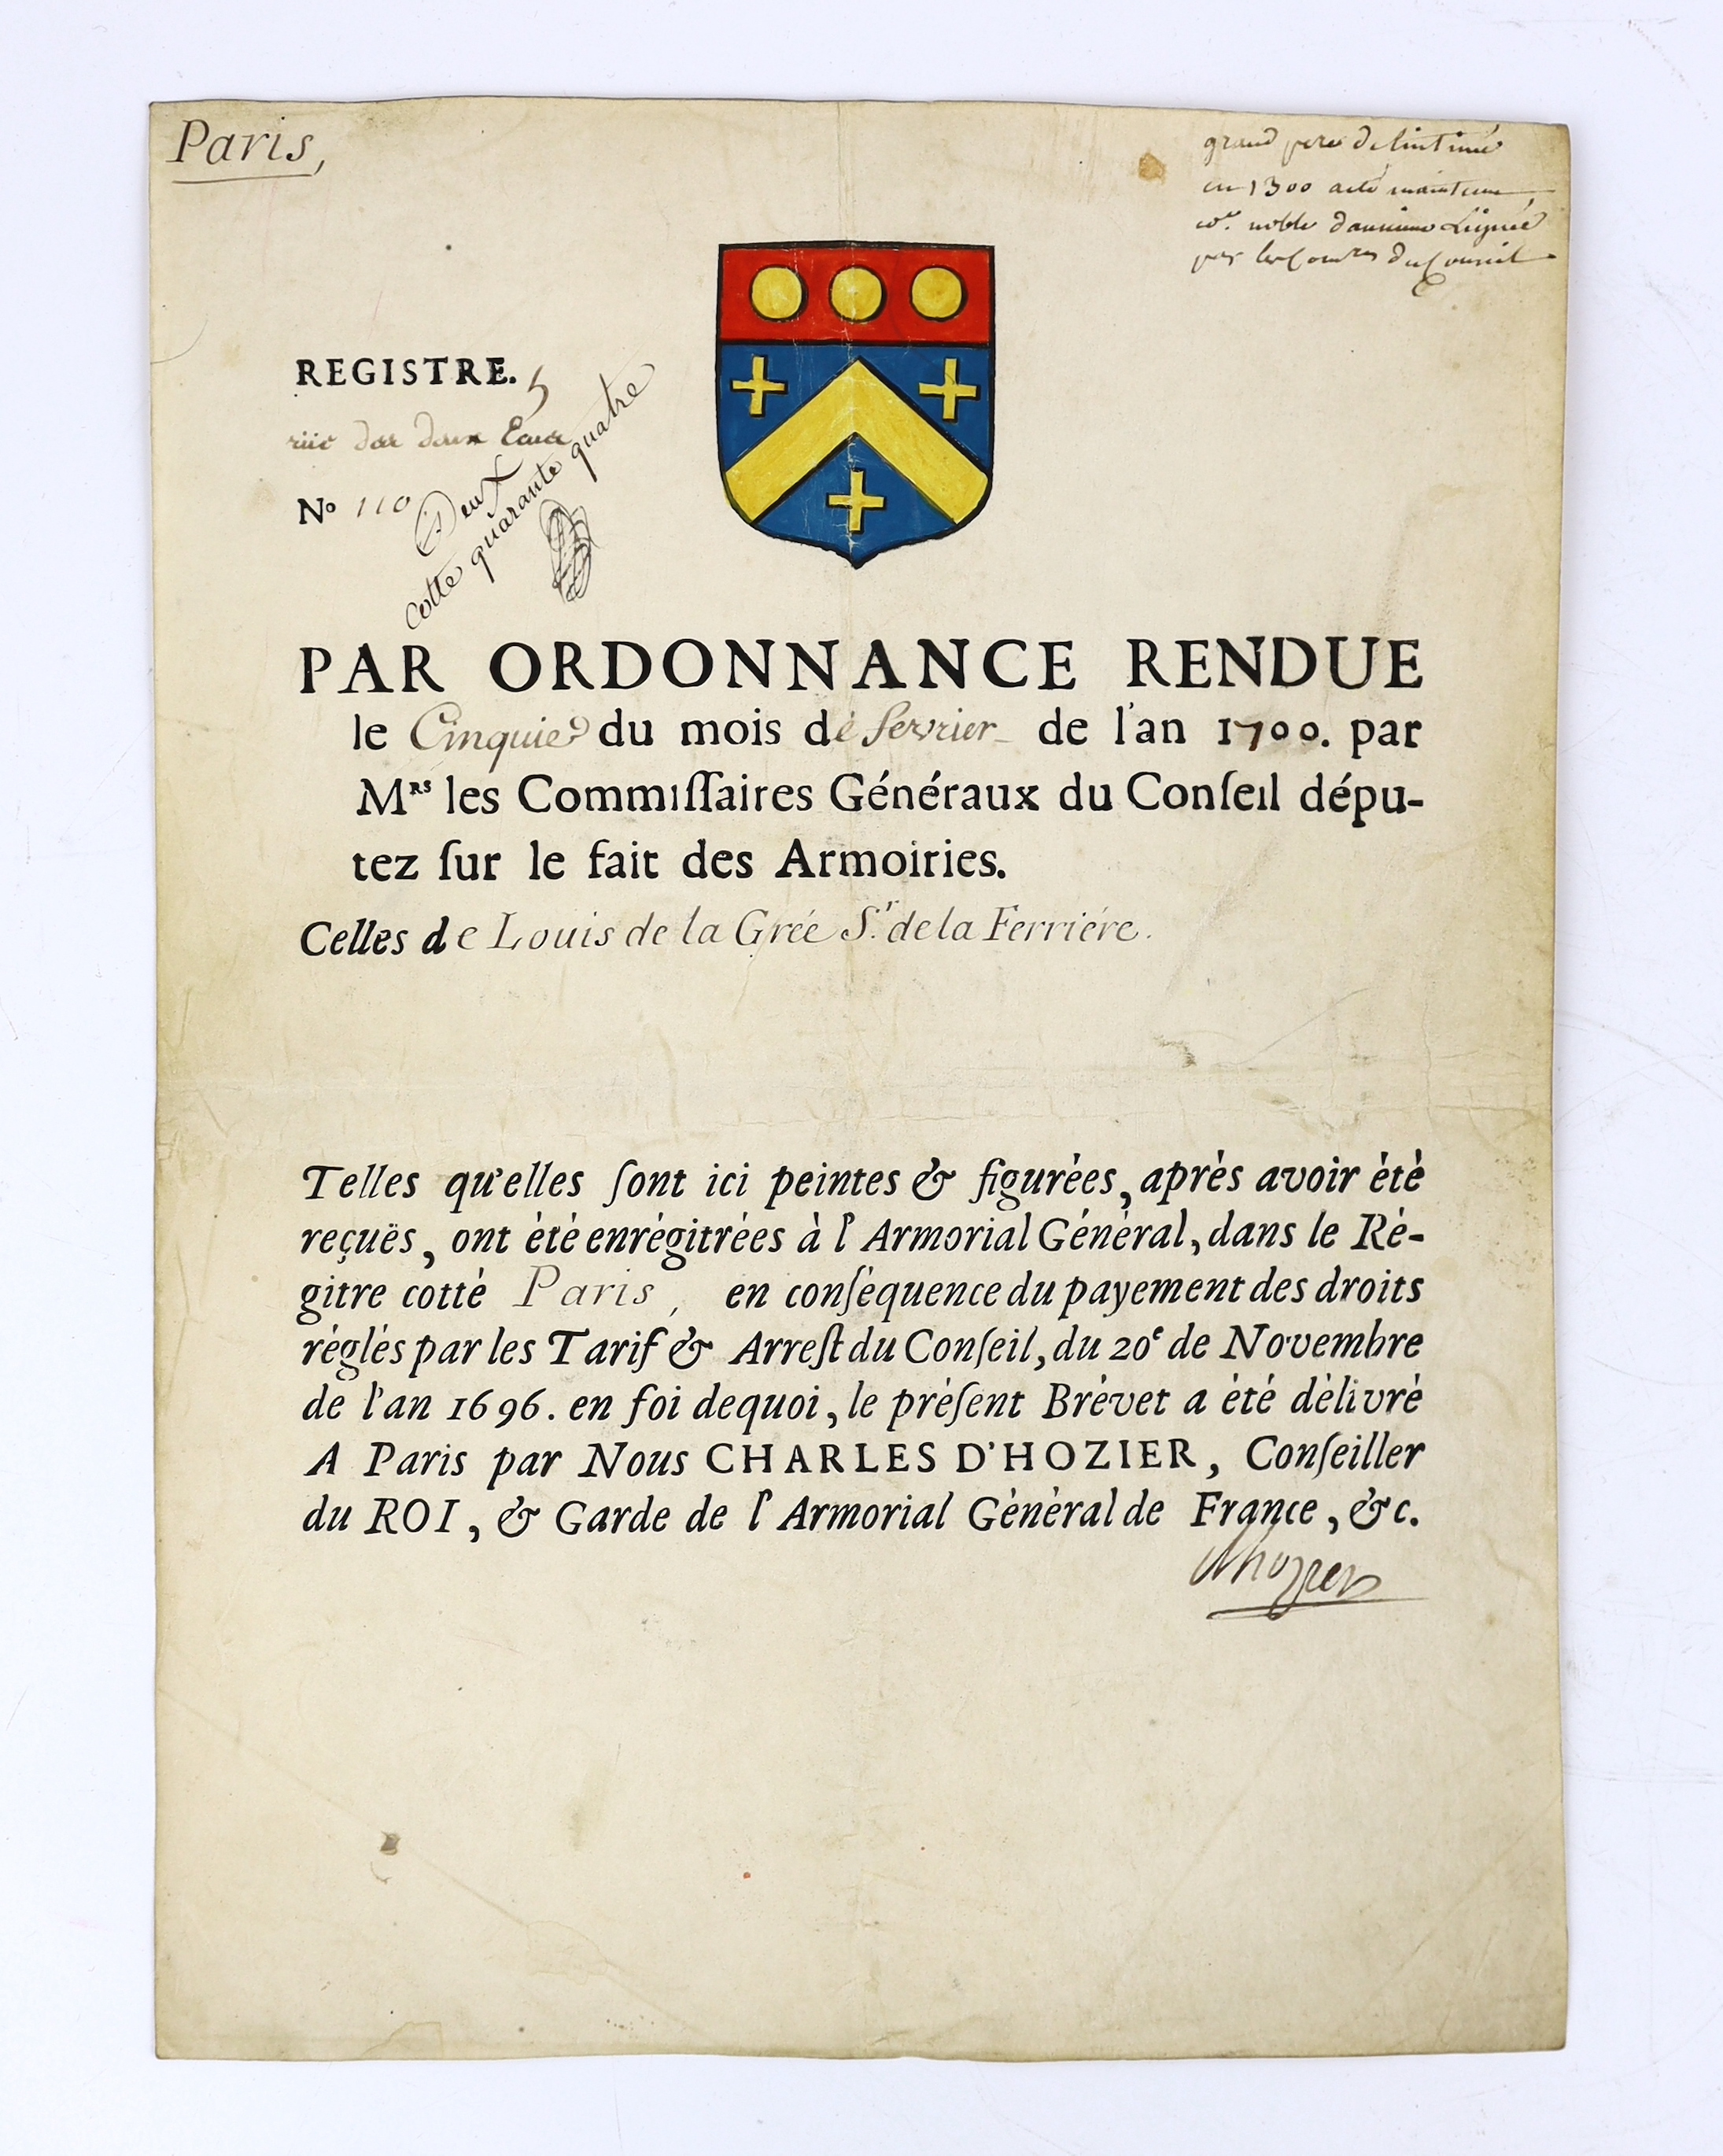 Paris,
grand pere de lintimé
en 1300 acté maintenu
noble
par les du Conseil
REGISTRE. 5
rüe des deux Ecus
No 110
Deux
cotte quarante quatre
PAR ORDONNANCE RENDUE
le Cinquie du mois de fevrier de l'an 1700. par
Mrs les Commiſſaires Généraux du Conſeil dépu-
tez ſur le fait des Armoiries.
Celles de Louis de la Grée Sr. de la Ferriére.
Telles qu'elles ſont ici peintes & figurèes, après avoir ètè
reçuës, ont ètè enrègitrèes à l'Armorial Gènèral, dans le Rè-
gitre cottè Paris, en conſèquence du payement des droits
règlès par les Tarif & Arreſt du Conſeil, du 20e de Novembre
de l'an 1696. en foi dequoi, le prèſent Brèvet a ètè dèlivrè
A Paris par Nous CHARLES D'HOZIER, Conſeiller
du ROI, & Garde de l'Armorial Gènèral de France, &c.
dhozier